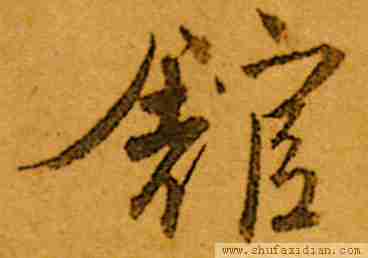 館
www.shufazidian.com